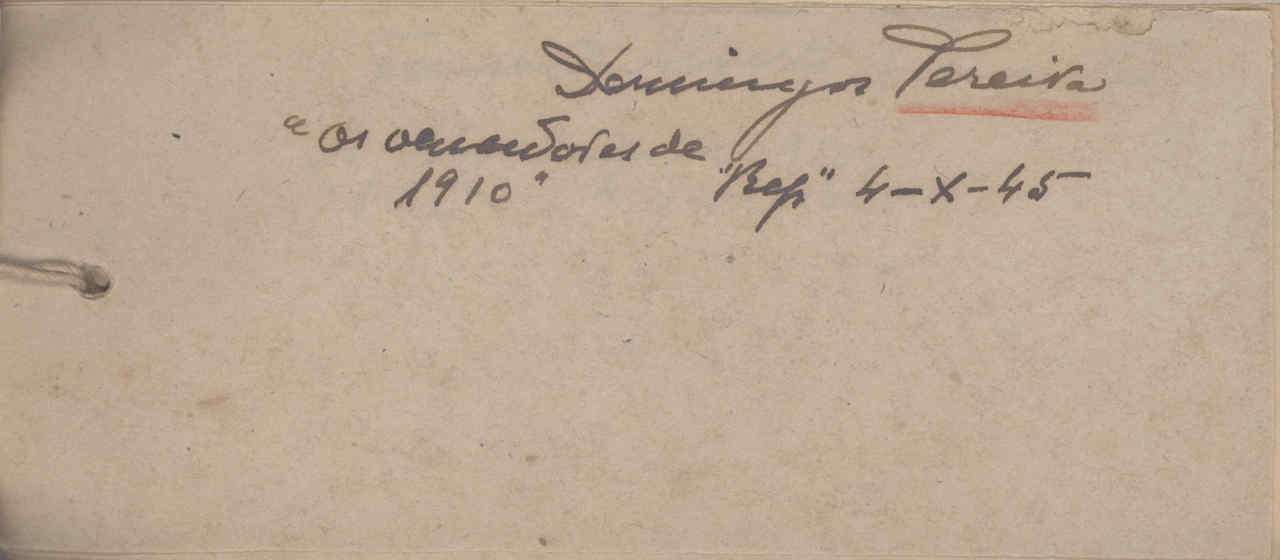 Domingos Pereira
"Os vencedores de
1910" "Rep" 4-X-45